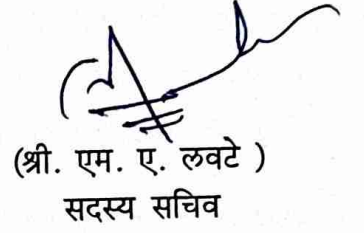 (श्री. एम. ए. लवटे )
सदस्य सचिव